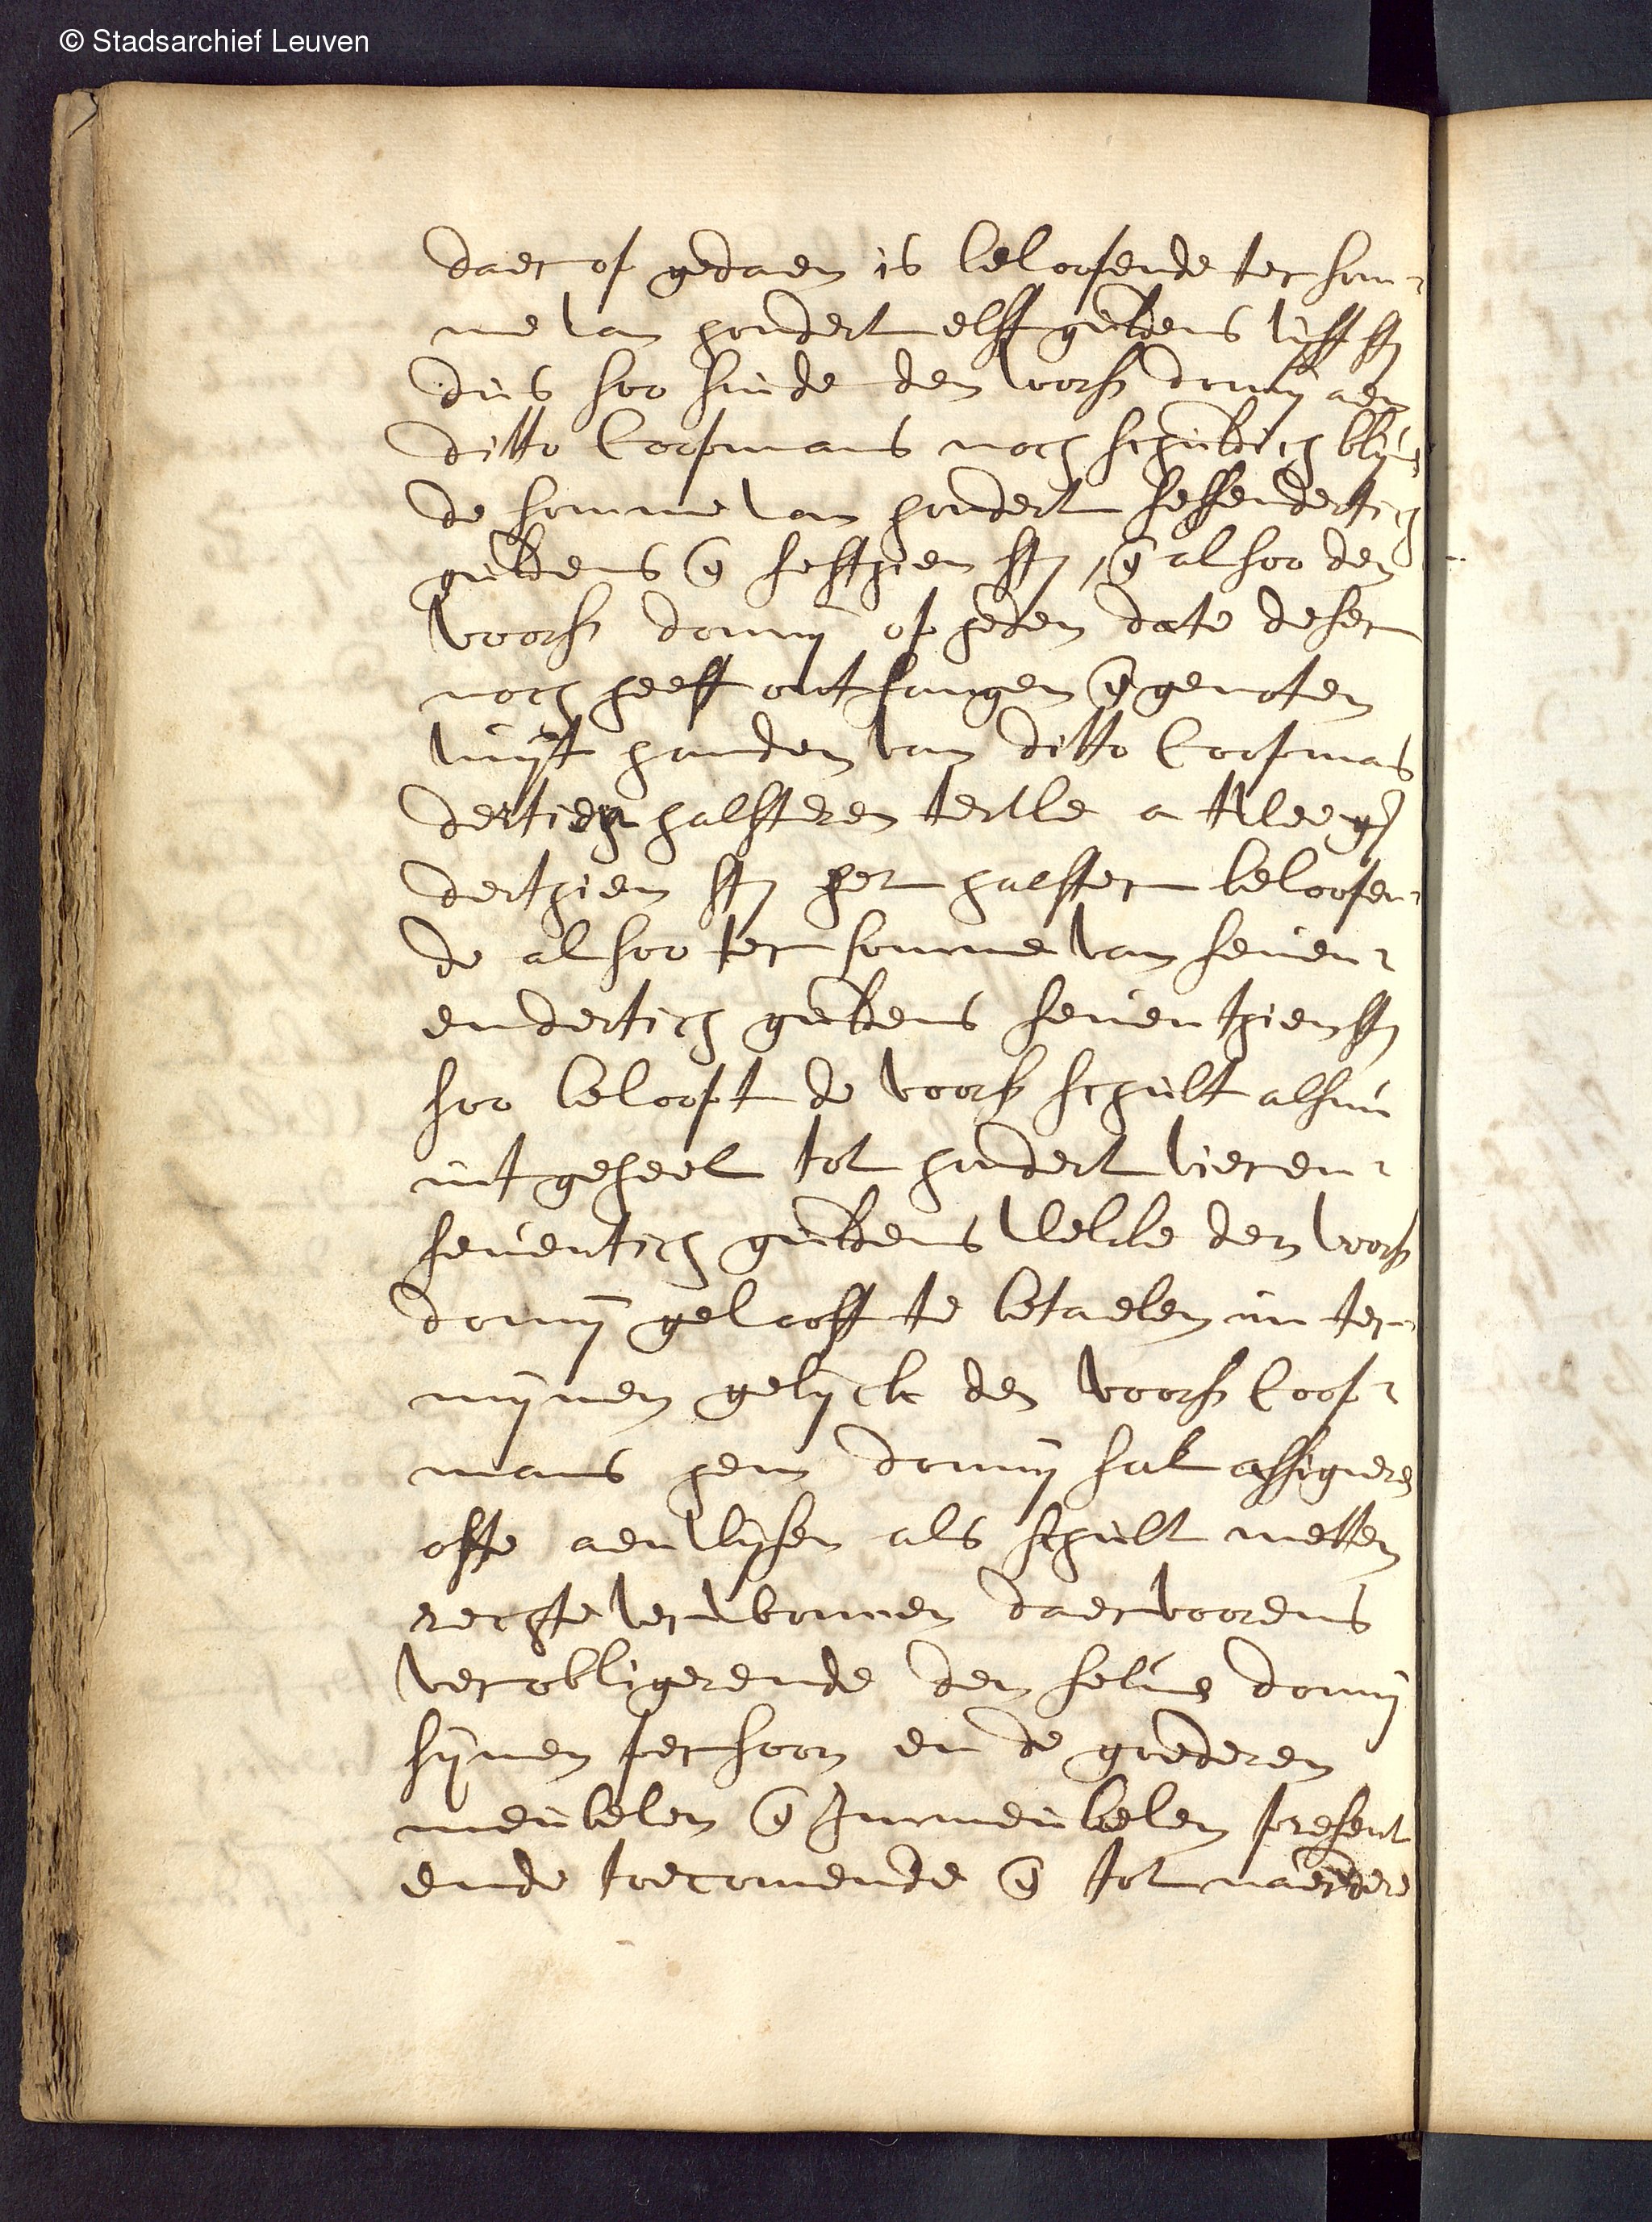 © Stadsarchief Leuven
daer op gedaen is beloopende ter som-
me van hondert elff guldens vyff st
dus soo sinde den voors donny aen
ditto Coopmans noch schuldich blyvende
de somme van hondert sessendertich
guldens en sesthien st, en alsoo den
voors donny op heden date deser
noch heeft ontfangen en genoten
vuyt handen van ditto Coopmas
derthien halsteren terwe a twee gl
derthien st per halster beloopen-
de alsoo ter somme van seven-
endertich guldens seventhien st
soo beloopt de voors schult alsnu
int geheel tot hondert vieren-
seventich guldens welcke den voors
donny gelooft te betaelen in ter-
mynen gelyck den voors Coop-
mans hem donny sal assigneren
ofte aenwysen als schult metten
rechte verwonnen daervoorens
verobligerende den selven donny
synen persoon ende goederen
meubelen en Immeubelen present
ende toecomende en tot naerdere